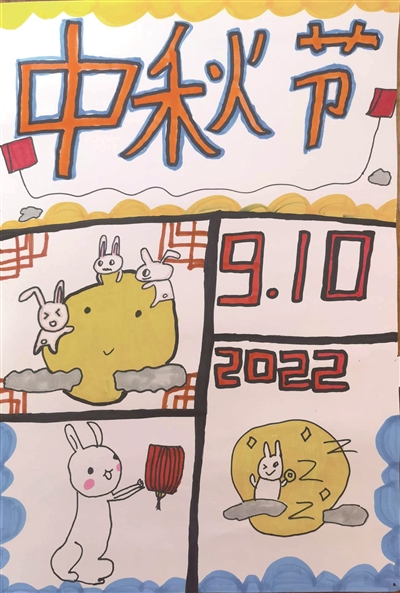 中秋节
9.10
2022